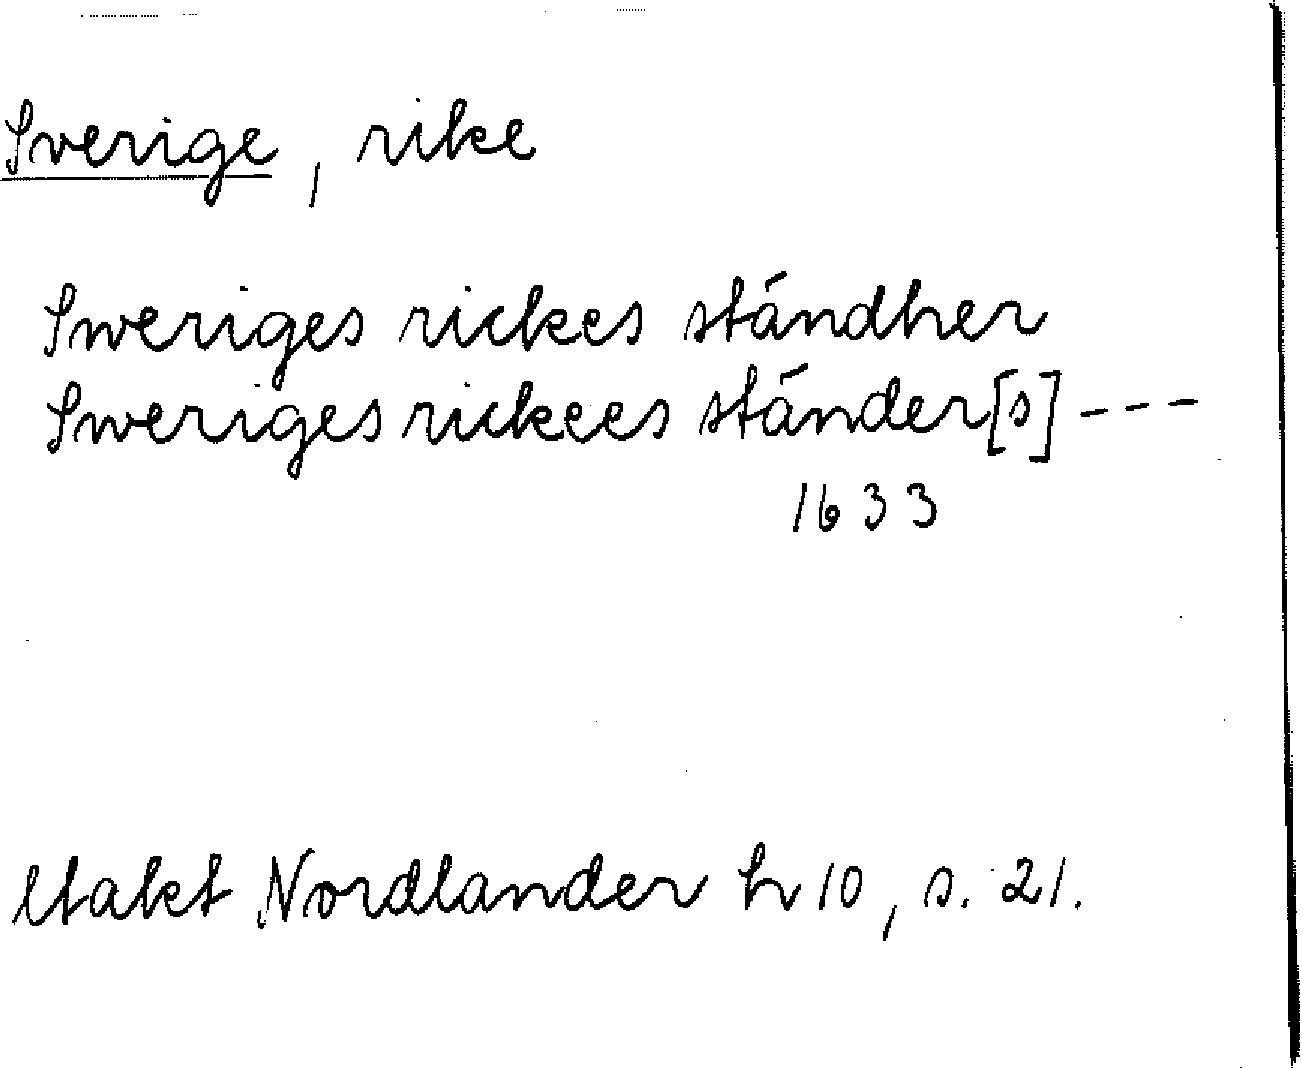 Sverige, rike
Sweriges rickes stándher
Sweriges rickees stánder[s] ---
1633
Nordlander h 10, s. 21.